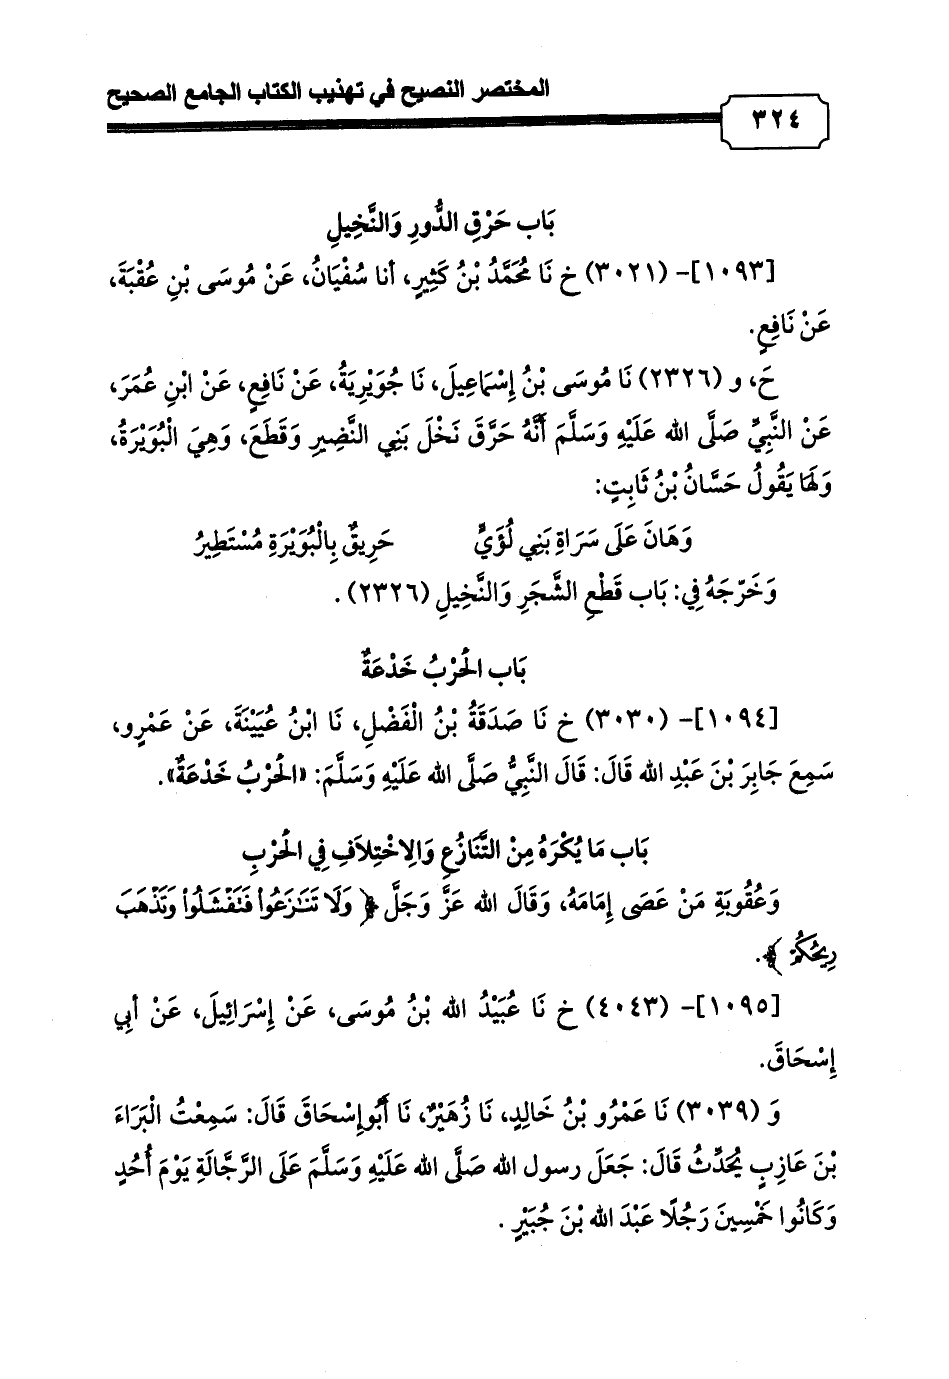 المختصر النصيح في تهذيب الكتاب الجامع الصحيح
٣٢٤
بَاب حَرْقِ الدُّورِ وَالنَّخِيلِ
[١٠٩٣]- (٣٠٢١) خ نَا مُحَمَّدُ بْنُ كَثِيرٍ، أنا سُفْيَانُ، عَنْ مُوسَى بْنِ عُقْبَةَ،
عَنْ نَافِعٍ.
حَ، و (٢٣٢٦) نَا مُوسَى بْنُ إِسْمَاعِيلَ، نَا جُوَيْرِيَةُ، عَنْ نَافِعٍ، عَنْ ابْنِ عُمَرَ،
عَنْ النَّبِيِّ صَلَّى الله عَلَيْهِ وَسَلَّمَ أَنَّهُ حَرَّقَ نَخْلَ بَنِي النَّضِيرِ وَقَطَعَ، وَهِيَ الْبُوَيْرَةُ،
وَلَهَا يَقُولُ حَسَّانُ بْنُ ثَابِتٍ:
وَهَانَ عَلَى سَرَاةِ بَنِي لُؤَيٍّ حَرِيقٌ بِالْبُوَيْرَةِ مُسْتَطِيرُ
وَخَرّجَهُ فِي: بَاب قَطْعِ الشَّجَرِ وَالنَّخِيلِ (٢٣٢٦).
بَاب الْحَرْبُ خَدْعَةٌ
[١٠٩٤]- (٣٠٣٠) خ نَا صَدَقَةُ بْنُ الْفَضْلِ، نَا ابْنُ عُيَيْنَةَ، عَنْ عَمْرٍو،
سَمِعَ جَابِرَ بْنَ عَبْدِ الله قَالَ: قَالَ النَّبِيُّ صَلَّى الله عَلَيْهِ وَسَلَّمَ: «الْحَرْبُ خَدْعَةٌ».
بَاب مَا يُكْرَهُ مِنْ التَّنَازُعِ وَالِاخْتِلَافِ فِي الْحَرْبِ
وَعُقُوبَةِ مَنْ عَصَى إِمَامَهُ، وَقَالَ الله عَزَّ وَجَلَّ ﴿وَلَا تَنَـٰزَعُوا۟ فَتَفْشَلُوا۟ وَتَذْهَبَ
رِيحُكُمْ﴾.
[١٠٩٥]- (٤٠٤٣) خ نَا عُبَيْدُ الله بْنُ مُوسَى، عَنْ إِسْرَائِيلَ، عَنْ أبِي
إِسْحَاقَ.
وَ (٣٠٣٩) نَا عَمْرُو بْنُ خَالِدٍ، نَا زُهَيْرٌ، نَا أَبُوإِسْحَاقَ قَالَ: سَمِعْتُ الْبَرَاءَ
بْنَ عَازِبٍ يُحَدِّثُ قَالَ: جَعَلَ رسول الله صَلَّى الله عَلَيْهِ وَسَلَّمَ عَلَى الرَّجَّالَةِ يَوْمَ أُحُدٍ
وَكَانُوا خَمْسِينَ رَجُلًا عَبْدَ الله بْنَ جُبَيْرٍ.